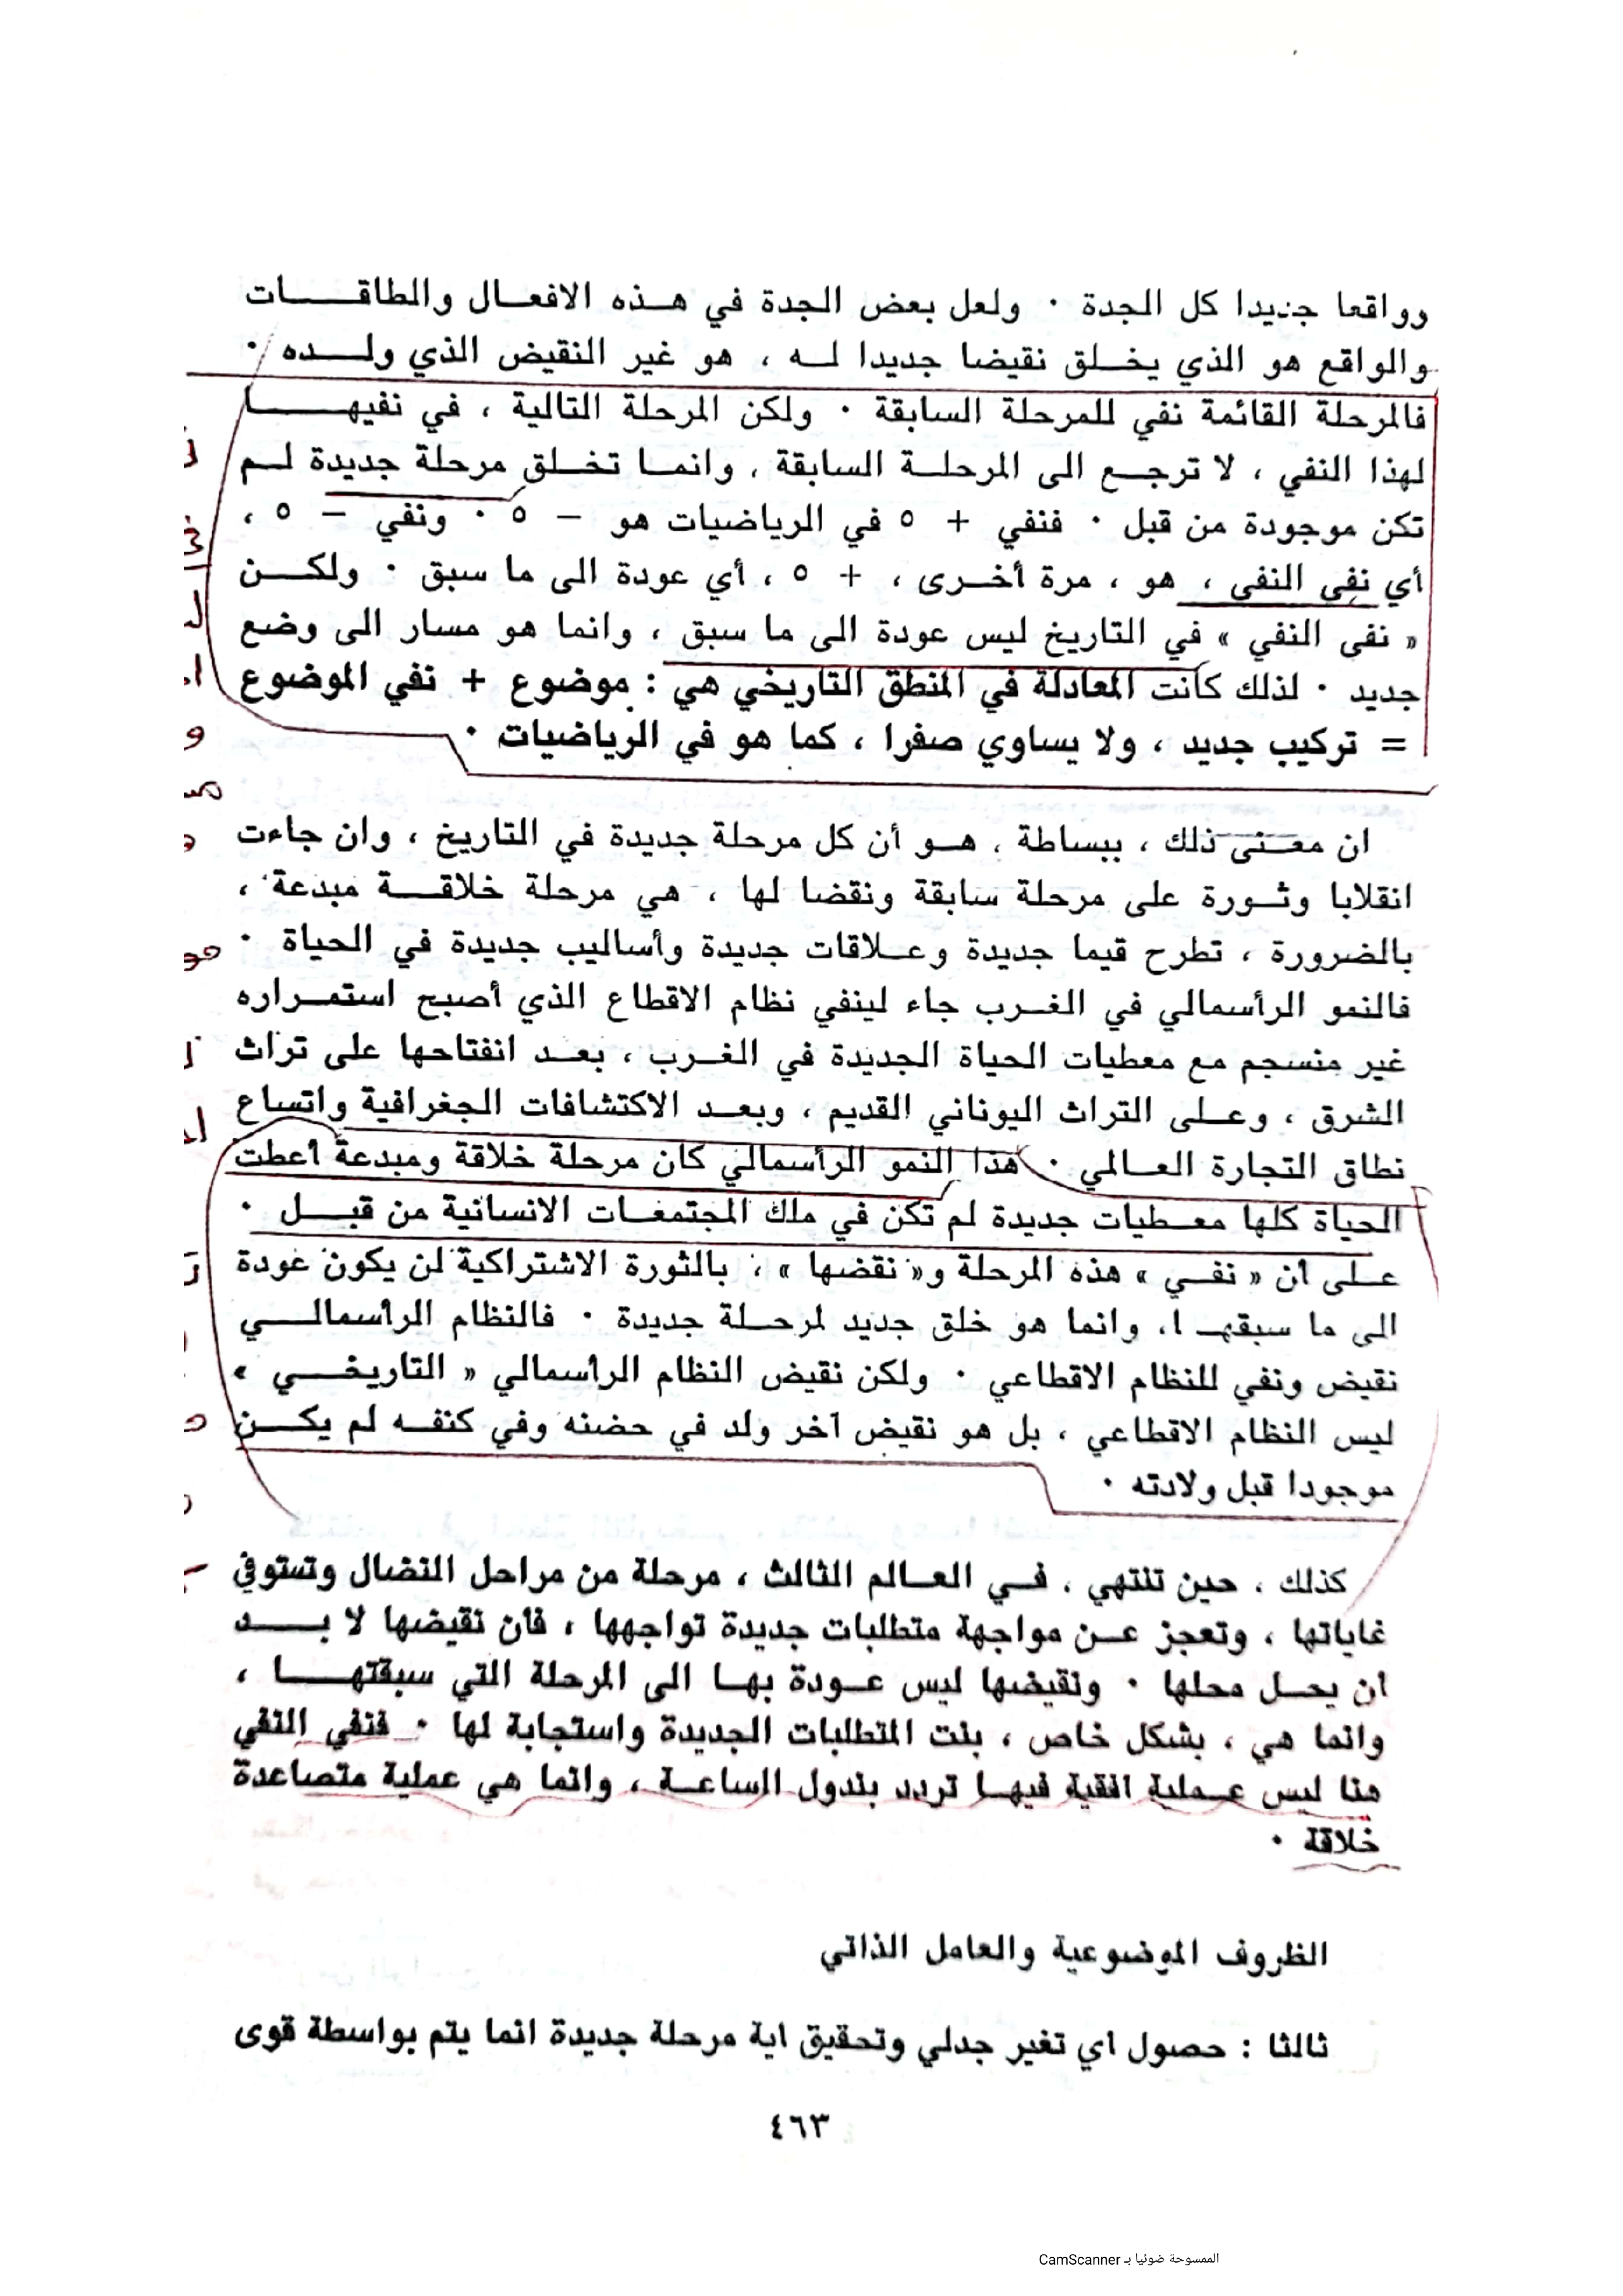 وواقعا جديدا كل الجدة ٠ ولعل بعض الجدة في هذه الافعال والطاقات
والواقع هو الذي يخلق نقيضا جديدا له ، هو غير النقيض الذي ولده ٠
فالمرحلة القائمة نفي للمرحلة السابقة ٠ ولكن المرحلة التالية ، في نفيها
لهذا النفي ، لا ترجع الى المرحلة السابقة ، وانما تخلق مرحلة جديدة لم
تكن موجودة من قبل ٠ فنفي + ٥ في الرياضيات هو – ٥ ٠ ونفي – ٥ ،
أي نفي النفي ، هو ، مرة أخرى ، + ٥ ، أي عودة الى ما سبق ٠ ولكن
« نفى النفي » في التاريخ ليس عودة الى ما سبق ، وانما هو مسار الى وضع
جديد ٠ لذلك كانت المعادلة في المنطق التاريخي هي : موضوع + نفي الموضوع
= تركيب جديد ، ولا يساوي صفرا ، كما هو في الرياضيات ٠
ان معنى ذلك ، ببساطة ، هو أن كل مرحلة جديدة في التاريخ ، وان جاءت
انقلابا وثورة على مرحلة سابقة ونقضا لها ، هي مرحلة خلاقة مبدعة ،
بالضرورة ، تطرح قيما جديدة وعلاقات جديدة وأساليب جديدة في الحياة ٠
فالنمو الرأسمالي في الغرب جاء لينفي نظام الاقطاع الذي أصبح استمراره
غير منسجم مع معطيات الحياة الجديدة في الغرب ، بعد انفتاحها على تراث
الشرق ، وعلى التراث اليوناني القديم ، وبعد الاكتشافات الجغرافية واتساع
نطاق التجارة العالمي ٠ هذا النمو الرأسمالي كان مرحلة خلاقة ومبدعة أعطت
الحياة كلها معطيات جديدة لم تكن في ملك المجتمعات الانسانية من قبل ٠
على أن « نفي » هذه المرحلة و« نقضها » ، بالثورة الاشتراكية لن يكون عودة
الى ما سبقها ، وانما هو خلق جديد لمرحلة جديدة ٠ فالنظام الرأسمالي
نقيض ونفي للنظام الاقطاعي ٠ ولكن نقيض النظام الرأسمالي « التاريخي »
ليس النظام الاقطاعي ، بل هو نقيض آخر ولد في حضنه وفي كنفه لم يكن
موجودا قبل ولادته ٠
كذلك ، حين تنتهي ، في العالم الثالث ، مرحلة من مراحل النضال وتستوفي
غاياتها ، وتعجز عن مواجهة متطلبات جديدة تواجهها ، فان نقيضها لا بد
ان يحل محلها ٠ ونقيضها ليس عودة بها الى المرحلة التي سبقتها ،
وانما هي ، بشكل خاص ، بنت المتطلبات الجديدة واستجابة لها ٠ فنفي النفي
هنا ليس عملية افقية فيها تردد بندول الساعة ، وانما هي عملية متصاعدة
خلاقة ٠
الظروف الموضوعية والعامل الذاتي
ثالثا : حصول اي تغير جدلي وتحقيق اية مرحلة جديدة انما يتم بواسطة قوى
٤٦٣
الممسوحة ضوئيا بـ CamScanner